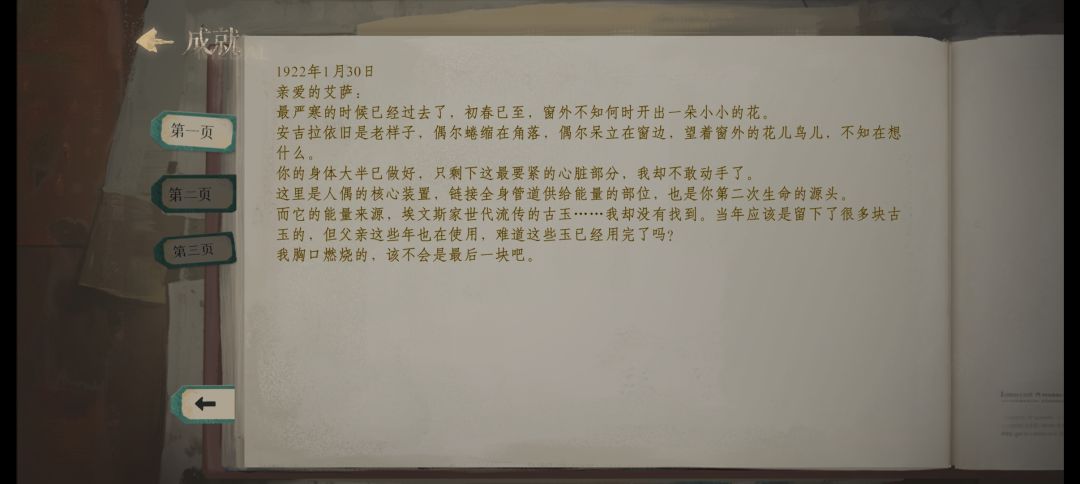 成就
1922年1月30日
亲爱的艾萨：
最严寒的时候已经过去了，初春已至，窗外不知何时开出一朵小小的花。
安吉拉依旧是老样子，偶尔蜷缩在角落，偶尔呆立在窗边，望着窗外的花儿鸟儿，不知在想
什么。
你的身体大半已做好，只剩下这最要紧的心脏部分，我却不敢动手了。
这里是人偶的核心装置，链接全身管道供给能量的部位，也是你第二次生命的源头。
而它的能量来源，埃文斯家世代流传的古玉……我却没有找到。当年应该是留下了很多块古
玉的，但父亲这些年也在使用，难道这些玉已经用完了吗？
我胸口燃烧的，该不会是最后一块吧。
第一页
第二页
第三页